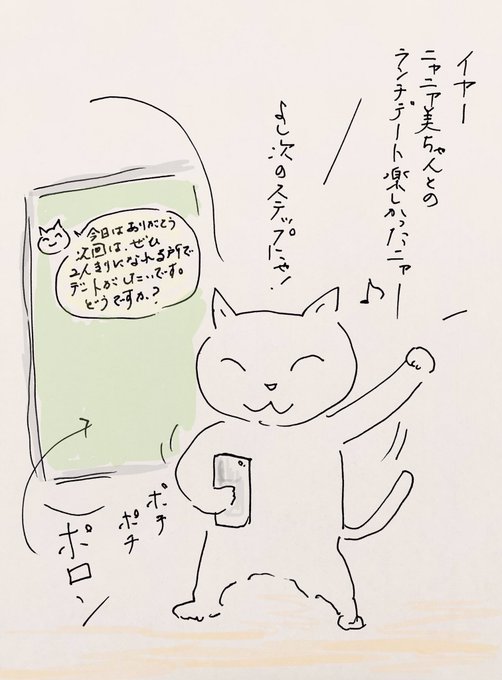 イヤー
ニャニャ美ちゃんとの
ランチデート楽しかったニャー
よし次のステップにゃ！
今日はありがとう
次回は、ぜひ
2人きりになれる場所で
デートがしたいです。
どうですか？
ポチ
ポチ
ポロン